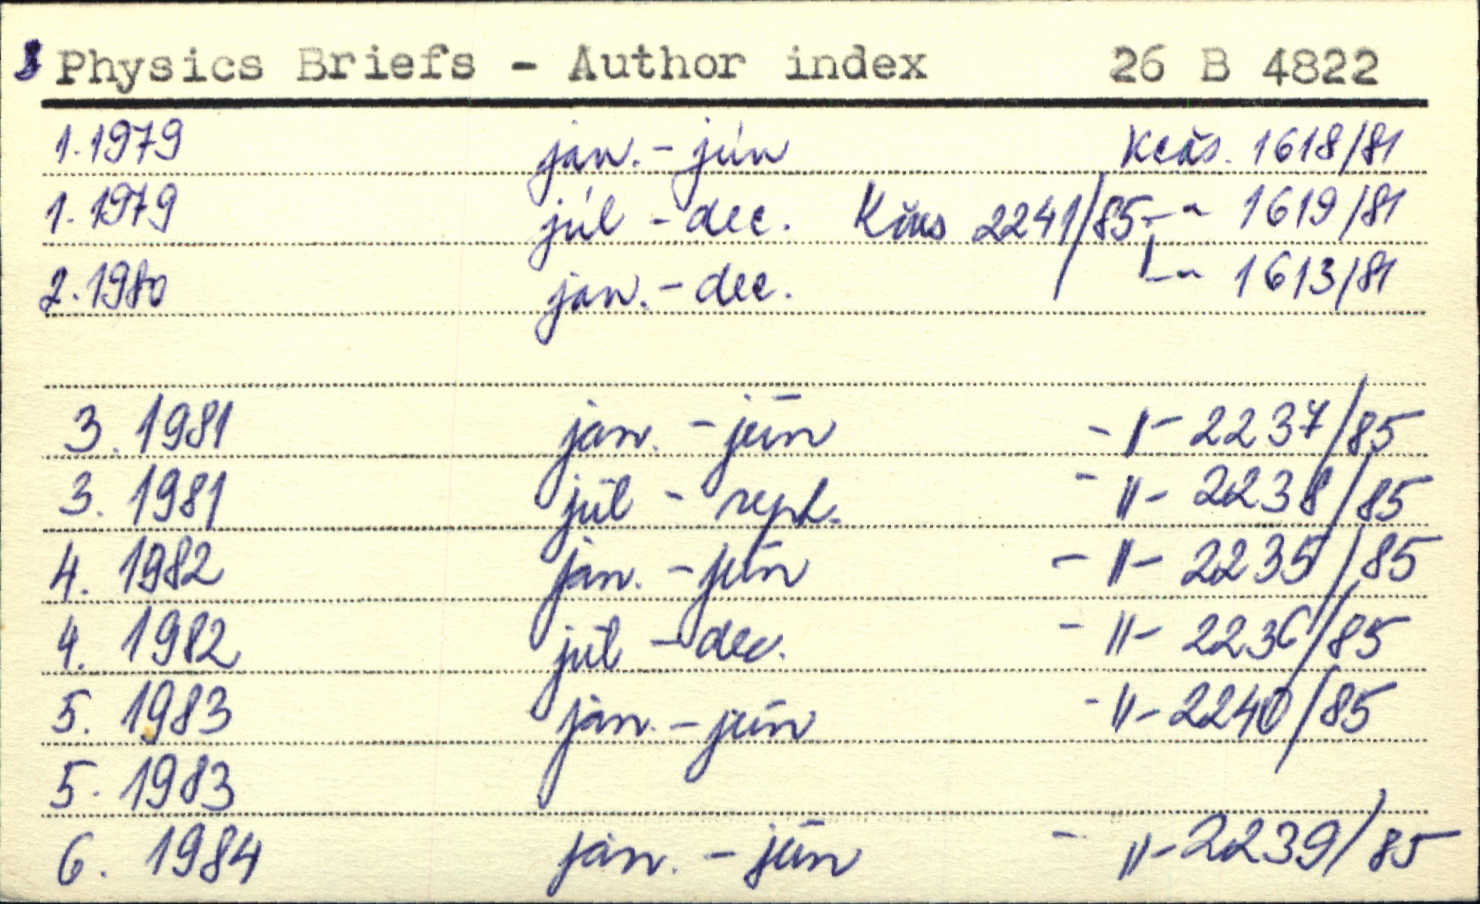 Physics Briefs - Author index 26 B 4822
1. 1979 jan. - jún Kčás. 1618/81
1. 1979 júl - dec. Kčas 2241/85 -"- 1619/81
2. 1980 jan. - dec. -"- 1613/81
3. 1981 jan. - jún -"- 2237/85
3. 1981 júl - sept. -"- 2238/85
4. 1982 jan. - jún -"- 2235/85
4. 1982 júl - dec. -"- 2236/85
5. 1983 jan. - jún -"- 2240/85
5. 1983
6. 1984 jan. - jún -"- 2239/85